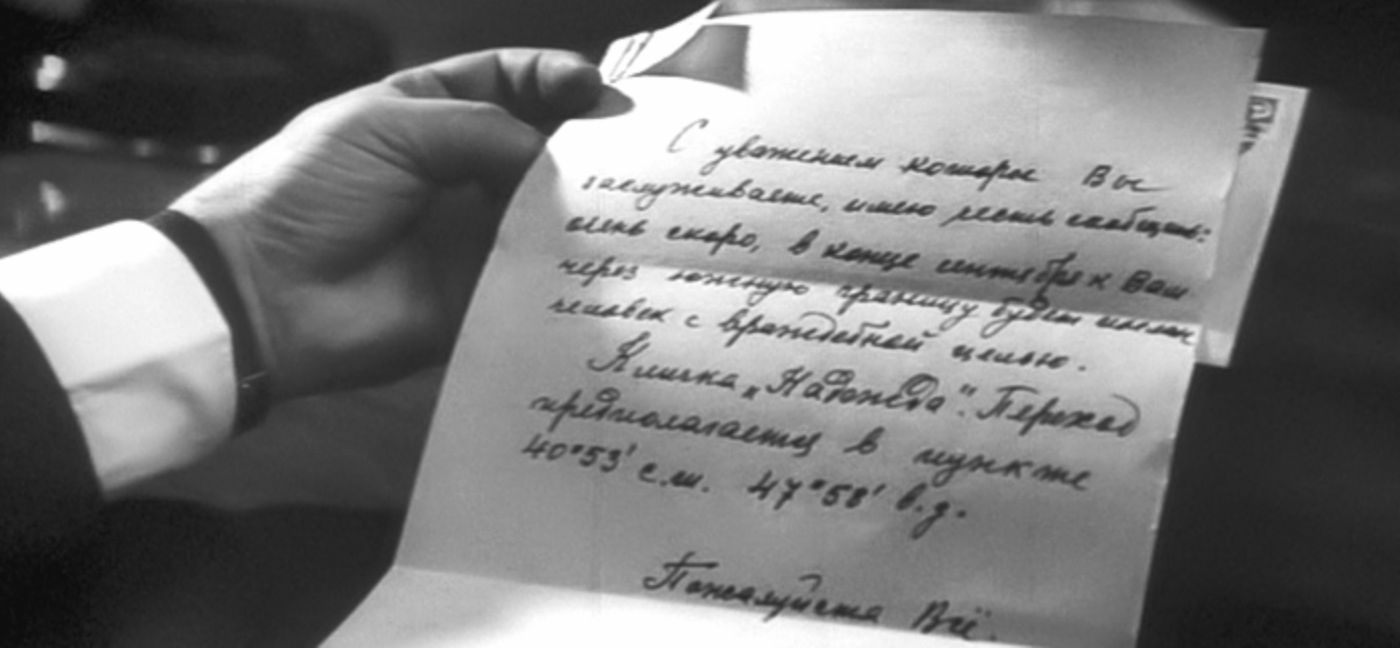 С уважением которые Вы
заслуживаете, имею честь сообщить:
очень скоро, в конце сентября к Вам
через южную границу будет
человек с враждебной целью.
Кличка „Надежда“. Переход
предполагается в пункте
40°53' с.ш. 47°58' в.д.
Пожалуйста Всё.